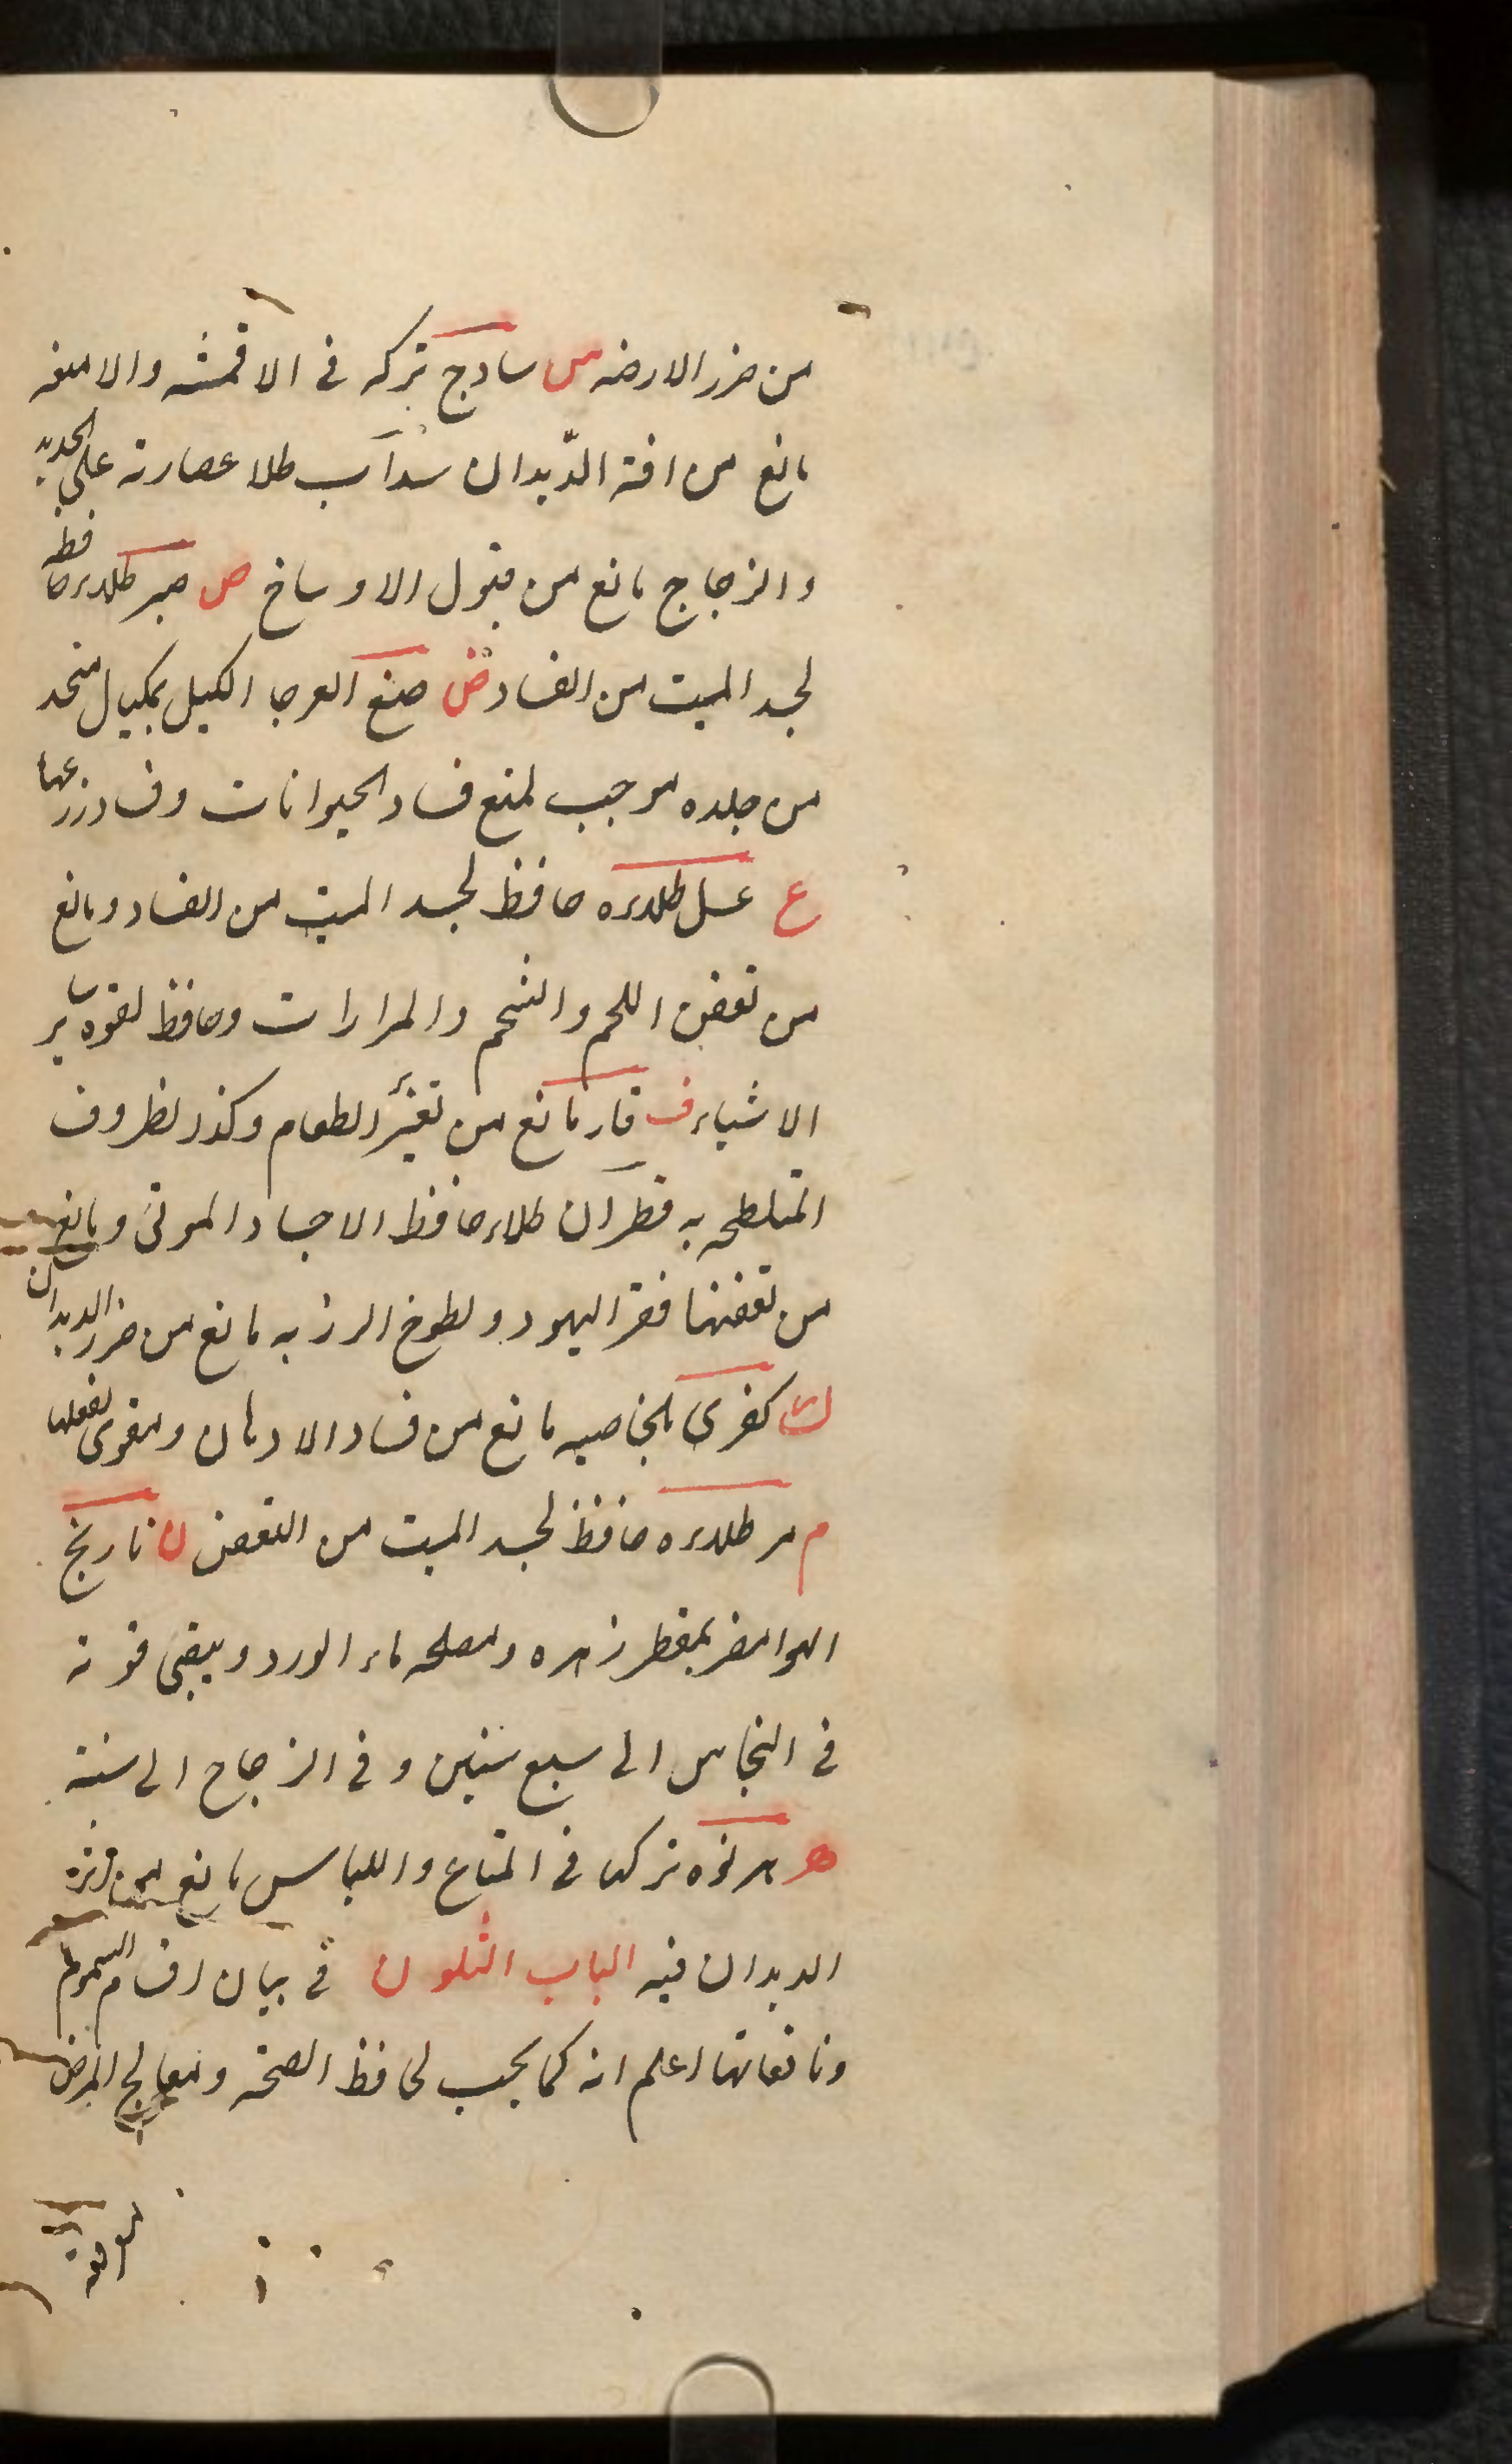 من ضرر الارضه س سادج تركه فى الاقمشه والامتعه
مانع من افة الدّيدان سداب طلا عصارته على الحديد
والزجاج مانع من قبول الاوساخ ص صبر طلاءه حافظ
لجسد الميت من الفساد ض ضبع العرجا الكيل بمكيال متخد
من جلده موجب لمنع فساد الحيوانات وفساد زرعها
ع عسل طلاءه حافظ لجسد الميت من الفساد ومانع
من تعفن اللحم والشحم والمرارات وحافظ لقوه ساير
الاشياء ف قار مانع من تغيّر الطعام وكذر لظروف
المتلطحه به قطران طلاء حافظ الاجساد الموتى ومانع
من تعفنها قفر اليهود ولطوخ الرز به مانع من ضرر الديدان
ك كفرى بلخاصيه مانع من فساد الادهان ومقوى لفعلها
م مر طلاءه حافظ لجسد الميت من التعفن ن نارنج
الهوا مضر بمقطر زهره ومصلحه ماء الورد ويبقى قوته
فى النحاس الى سبع سنين وفى الزجاج الى سنة
ه هرنوه تركه فى المتاع واللباس مانع من
الديدان فيه الباب الثلون فى بيان اقسام السموم
ونافعاتها اعلم انه كما يجب لحافظ الصحة ومعالج المرض